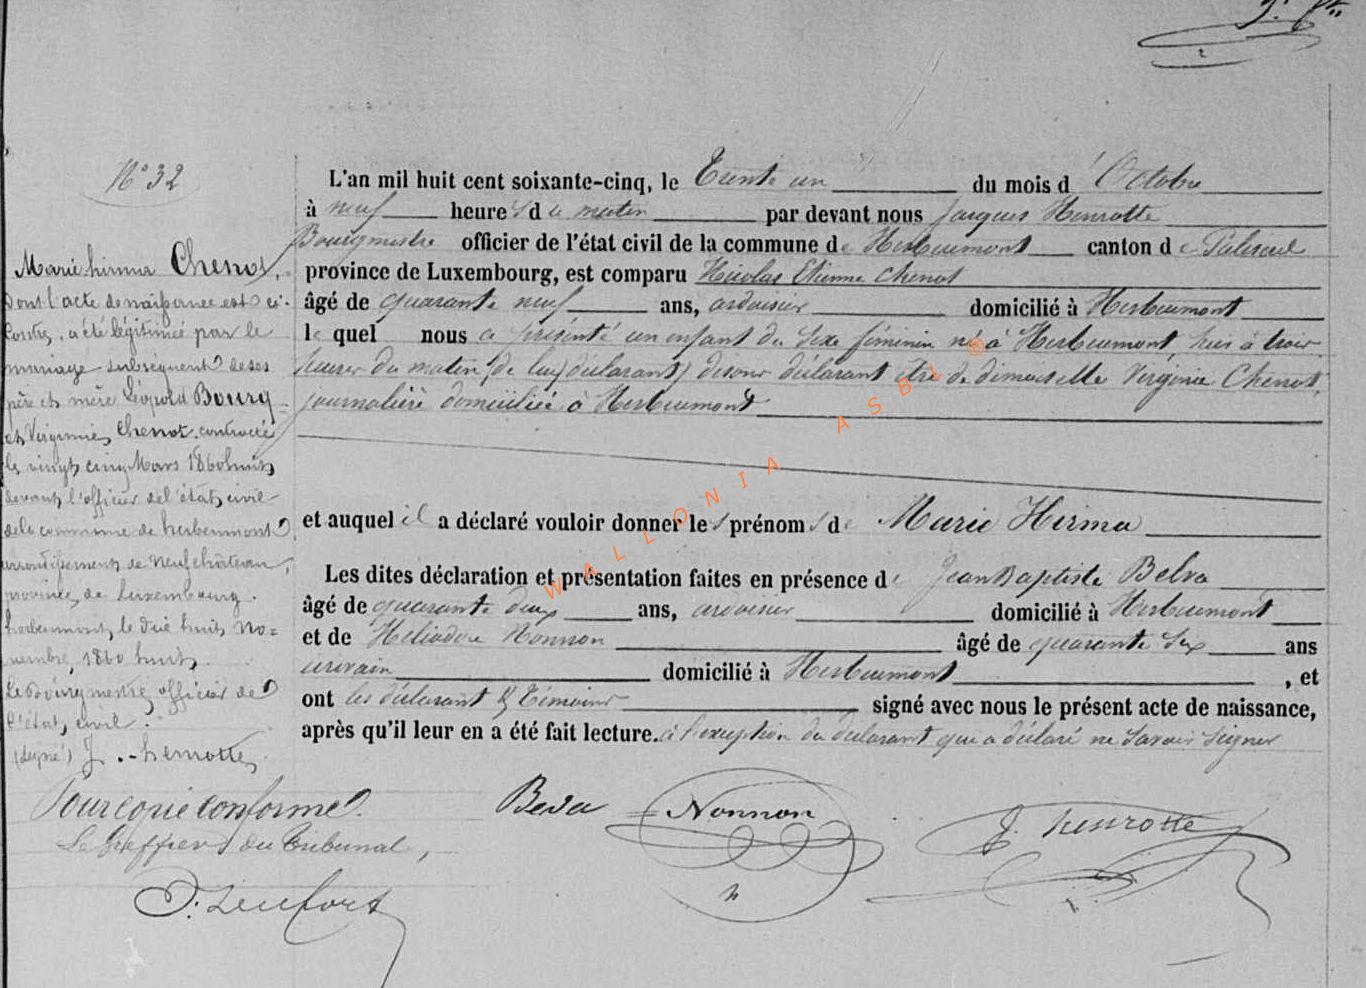 N° 32
L'an mil huit cent soixante-cinq, le Trente un du mois d'Octobre
à neuf heures du matin par devant nous Jacques Henrotte
Bourgmestre officier de l'état civil de la commune de Herbeumont canton de Paliseul
province de Luxembourg, est comparu Nicolas Etienne Chenot
âgé de quarante neuf ans, ardoisier domicilié à Herbeumont
lequel nous a présenté un enfant du sexe féminin né à Herbeumont, hier à trois
heures du matin, de lui déclarant et déclarant être de demoiselle Virginie Chenot,
journalière domiciliée à Herbeumont
et auquel il a déclaré vouloir donner les prénoms de Marie Hirma
Les dites déclaration et présentation faites en présence de Jean Baptiste Belva
âgé de quarante deux ans, ardoisier domicilié à Herbeumont
et de Héliodore Nonnon âgé de quarante six ans
domicilié à Herbeumont, et
ont les déclarant & témoins signé avec nous le présent acte de naissance,
après qu'il leur en a été fait lecture. à l'exception du déclarant qui a déclaré ne savoir signer
Marie hirma Chenot,
dont l'acte de naissance est ci-
contre, a été légitimée par le
mariage subséquent de ses
père et mère Léopold Bourg
et Virginie Chenot, contracté
le vingt cinq Mars 1860 huit
devant l'officier de l'état civil
de la commune de herbeumont
arrondissement de Neufchâteau,
province de Luxembourg.
herbeumont, le dix huit No=
vembre, 1860 huit.
Le Bourgmestre, officier de
l'état civil.
(signé) J. henrotte,
Pour copie conforme
Le Greffier du Tribunal,
Belva Nonnon J. henrotte
WALLONIA ASBL ®